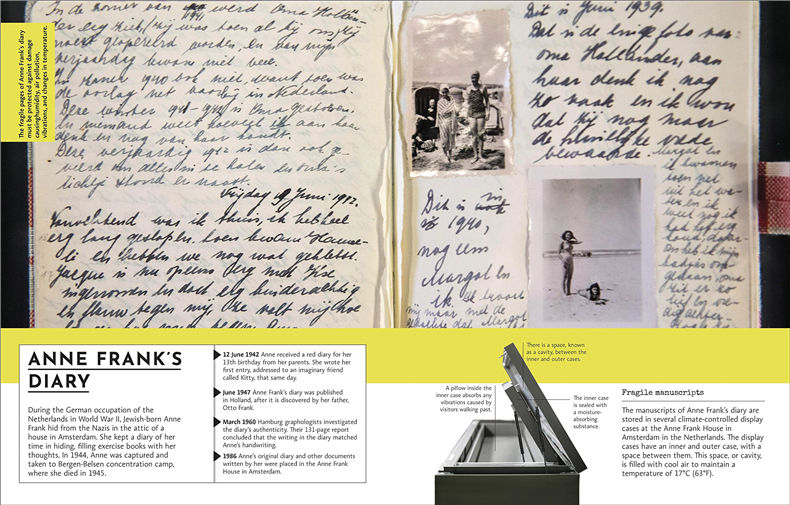 The fragile pages of Anne Frank's diary
must be protected against damage
causinghumidity, air pollution,
vibrations, and changes in temperature.
In de zomer van 1941 werd Oma Hollän-
der erg ziek, (zij was toen al bij ons) zij
moest geopereerd worden, en van mijn
verjaardag kwam niet veel.
In zomer 1940 ook niet, want toen was
de oorlog net voorbij in Nederland.
Deze winter 1941-1942 is Oma gestorven.
En niemand weet hoeveel ik aan haar
denk en nog van haar houdt.
Deze verjaardag 1942 is dan ook ge-
vierd om alles in te halen en oma's
lichtje stond er naast.
Vrijdag 19 Juni 1942.
Vanochtend was ik thuis, ik heb heel
erg lang geslapen, toen kwam Hanne-
li en hebben we nog wat gekletst.
Jacque is nu opeens erg met Ilse
ingenomen en doet erg kinderachtig
Dit is Juni 1939.
Dat is de enige foto van
oma Hollander, aan
haar denk ik nog
zo vaak en ik wou
dat zij nog maar
de huiselijke vrede
bewaarde.
Dit is in
1940,
nog eens
Margot en
ik.
ANNE FRANK'S
DIARY
During the German occupation of the
Netherlands in World War II, Jewish-born Anne
Frank hid from the Nazis in the attic of a
house in Amsterdam. She kept a diary of her
time in hiding, filling exercise books with her
thoughts. In 1944, Anne was captured and
taken to Bergen-Belsen concentration camp,
where she died in 1945.
12 June 1942 Anne received a red diary for her
13th birthday from her parents. She wrote her
first entry, addressed to an imaginary friend
called Kitty, that same day.
June 1947 Anne Frank's diary was published
in Holland, after it is discovered by her father,
Otto Frank.
March 1960 Hamburg graphologists investigated
the diary's authenticity. Their 131-page report
concluded that the writing in the diary matched
Anne's handwriting.
1986 Anne's original diary and other documents
written by her were placed in the Anne Frank
House in Amsterdam.
There is a space, known
as a cavity, between the
inner and outer cases.
A pillow inside the
inner case absorbs any
vibrations caused by
visitors walking past.
The inner case
is sealed with
a moisture-
absorbing
substance.
Fragile manuscripts
The manuscripts of Anne Frank's diary are
stored in several climate-controlled display
cases at the Anne Frank House in
Amsterdam in the Netherlands. The display
cases have an inner and outer case, with a
space between them. This space, or cavity,
is filled with cool air to maintain a
temperature of 17°C (63°F).